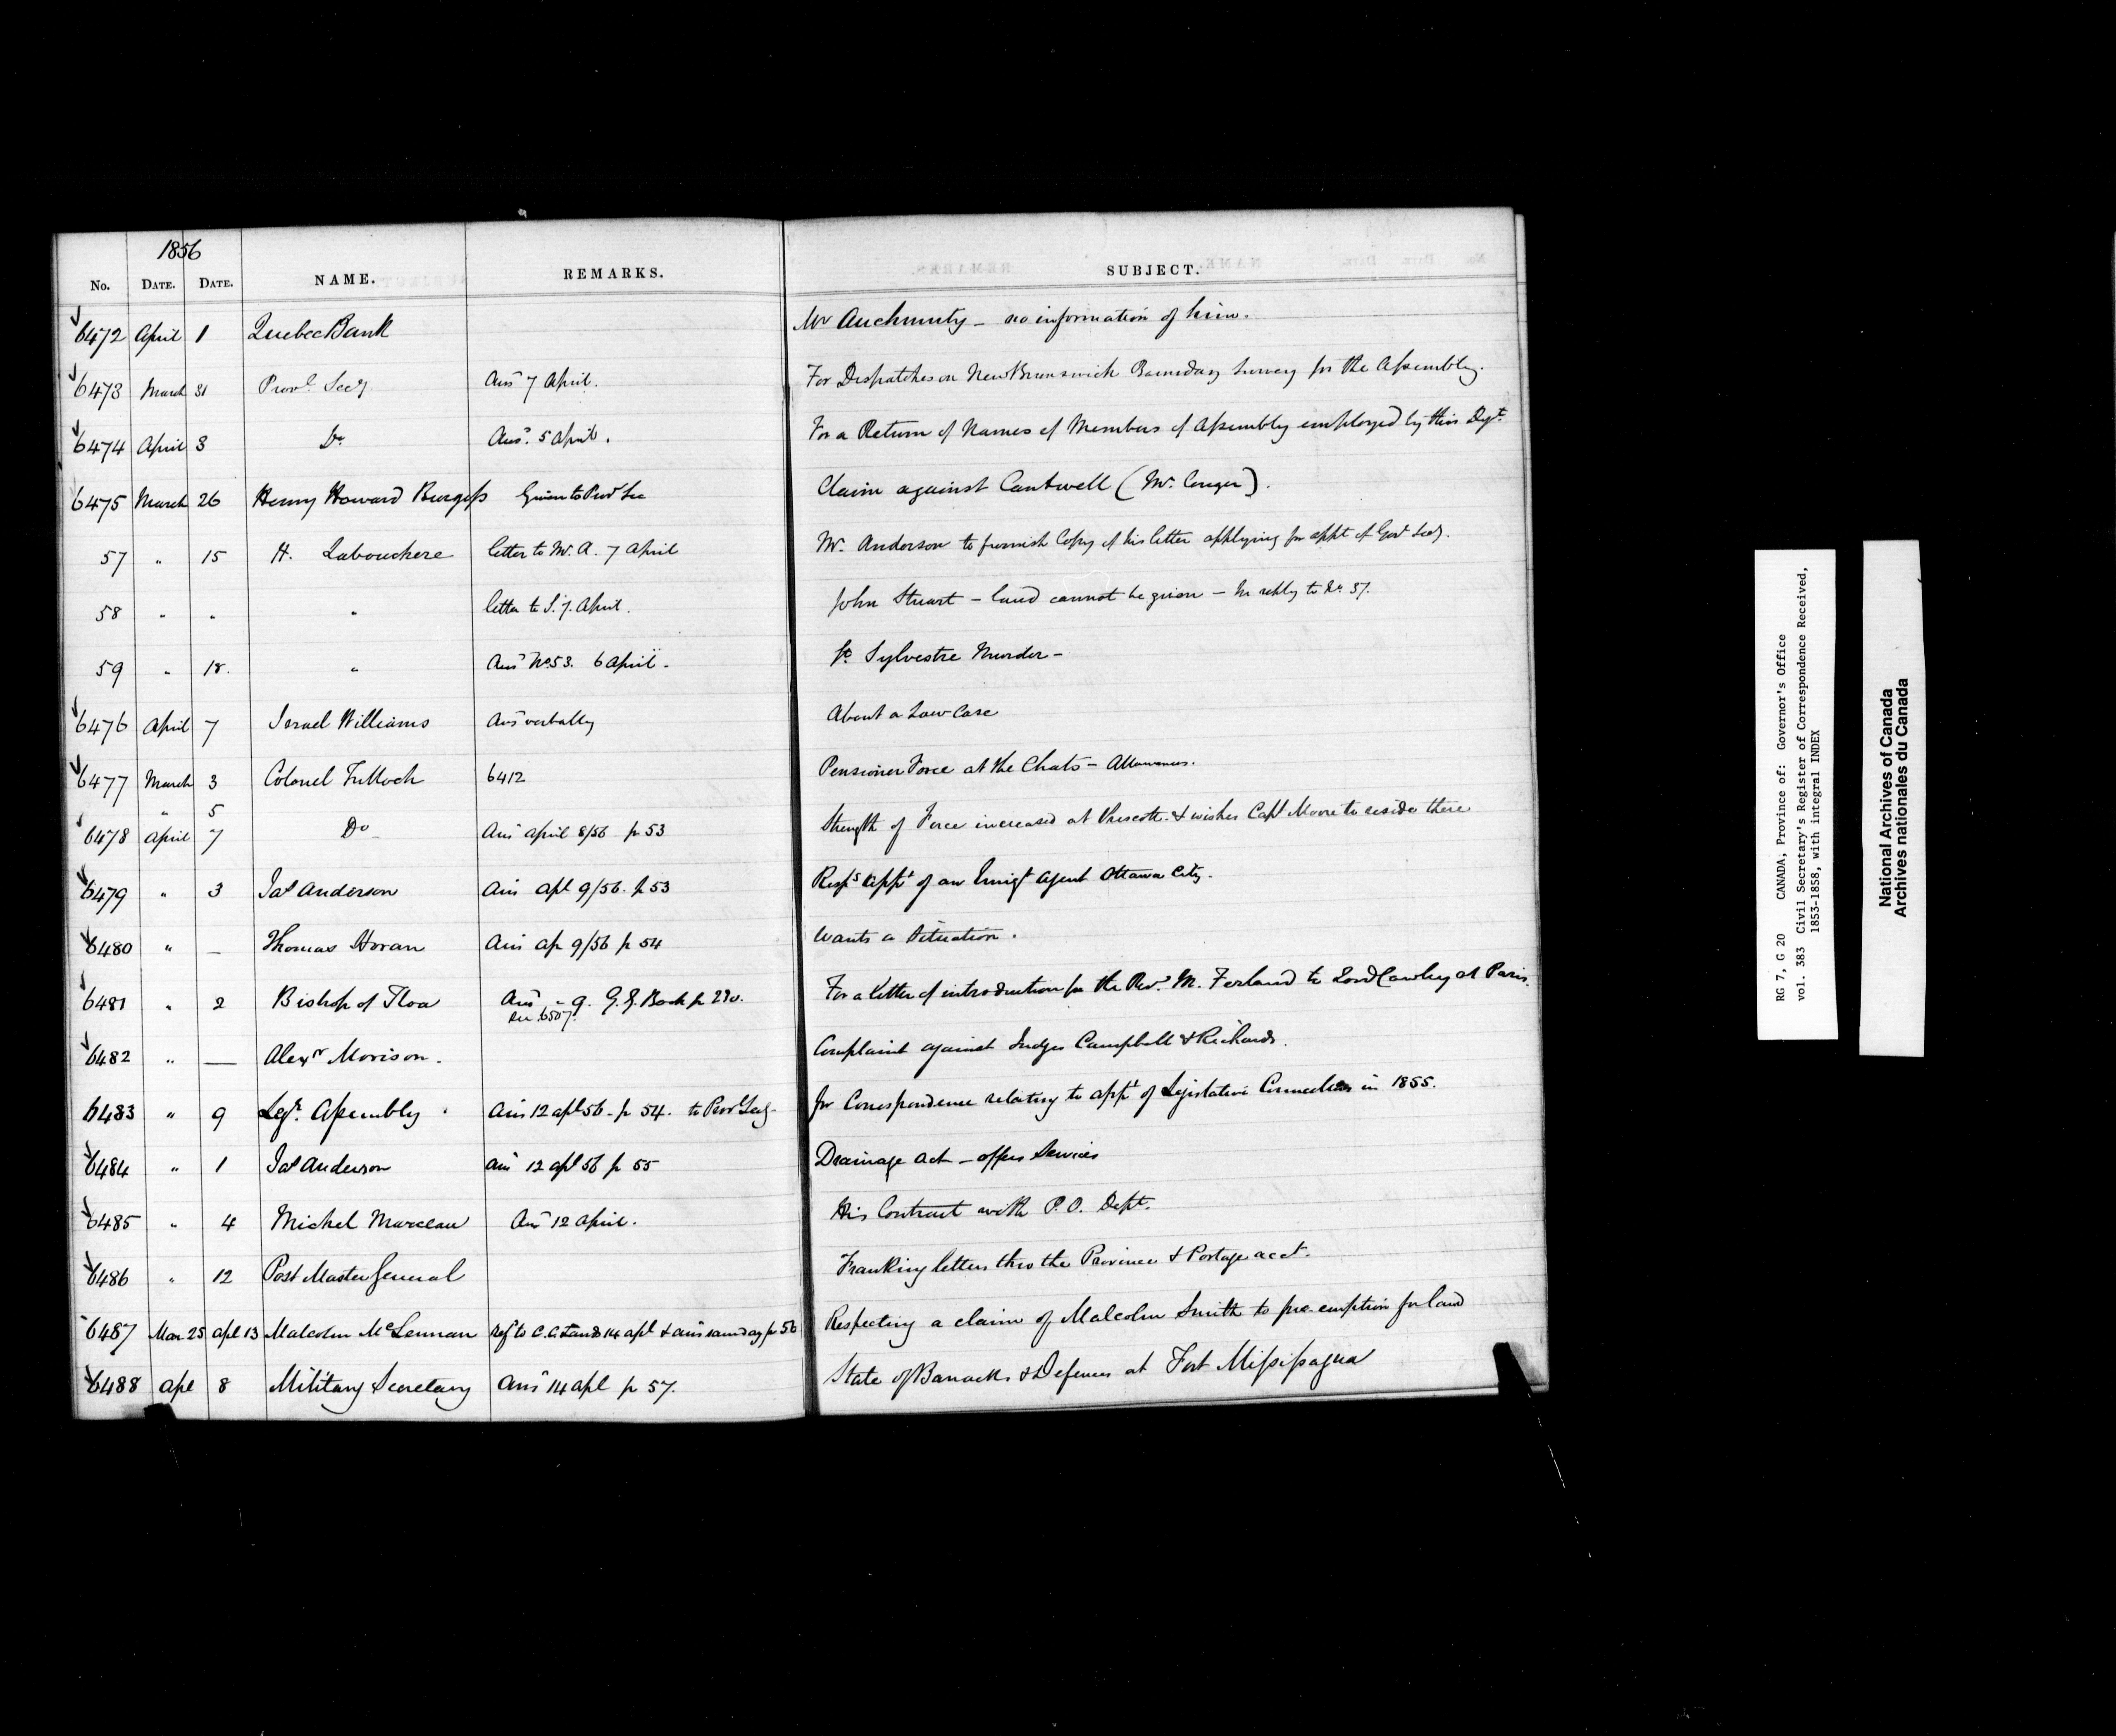 1856
No. DATE. DATE. NAME. REMARKS. SUBJECT.
6472 April 1 Quebec Bank Mr Auchmuty - no information of him.
6473 March 31 Provl. Secy Ansd 7 April. For Dispatches on New Brunswick Boundary Survey for the Assembly.
6474 April 3 Do Ansd. 5 April. For a Return of Names of Members of Assembly employed by this Dept
6475 March 26 Henry Howard Burgess Given to Provl Sec Claim against Cantwell (Mr. Conger).
57 " 15 H. Labouchere letter to Mr. A. 7 April Mr. Anderson to furnish Copy of his letter applying for appt of Govt Secy.
58 " " " letter to S. 7. April. John Stuart - land cannot be given - In reply to No. 37.
59 " 18. " Ansd No 53. 6 April. St. Sylvestre Murder -
6476 April 7 Israel Williams Ansd verbally About a Law Case
6477 March 3 Colonel Tulloch 6412 Pensioner Force at the Chats - Allowances.
" 5
6478 April 7 Do Ansd April 8/56 p 53 Strength of Force increased at Prescott & wishes Capt Moore to reside there
6479 " 3 Jas Anderson Ans Apl 9/56. p 53 Resps appt of an Emigt Agent Ottawa City.
6480 " — Thomas Horan Ans Ap 9/56 p 54 Wants a Situation.
6481 " 2 Bishop of Tloa Ansd " 9. G.G. Book p 230. For a letter of introduction for the Revd. M. Ferland to Lord Cowley at Paris.
See 6507.
6482 " — Alexr Morison. Complaint against Judges Campbell & Richards.
6483 " 9 Legr. Assembly Ans 12 apl 56 - p 54. to Provl Secy - for Correspondence relating to appt of Legislative Councillors in 1855.
6484 " 1 Jas Anderson Ans 12 apl 56 p 55 Drainage Act - offers Services
6485 " 4 Michel Marceau Ansd 12 April. His Contract with P.O. Dept.
6486 " 12 Post Master General Franking letters thro the Province & Postage acct.
6487 Mar 25 apl 13 Malcolm McLennan Ref to C.C. Lands 14 apl & ans same day p 56 Respecting a claim of Malcolm Smith to pre-emption for land
6488 Apl 8 Military Secretary Ansd 14 apl p 57. State of Barracks & Defences at Fort Missisagua
RG 7, G 20 CANADA, Province of: Governor's Office
vol. 383 Civil Secretary's Register of Correspondence Received,
1853-1858, with integral INDEX
National Archives of Canada
Archives nationales du Canada